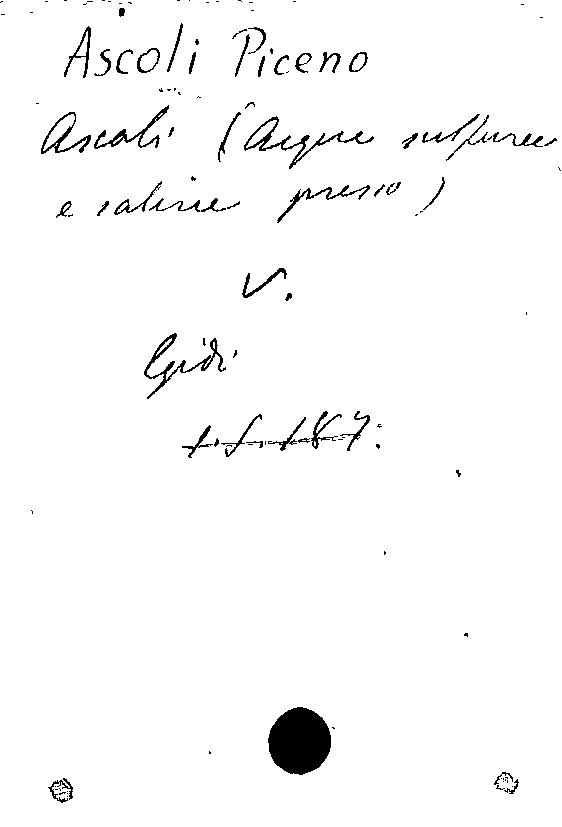 Ascoli Piceno
Ascoli (Acque sulfuree
e saline presso)
V.
Egidi